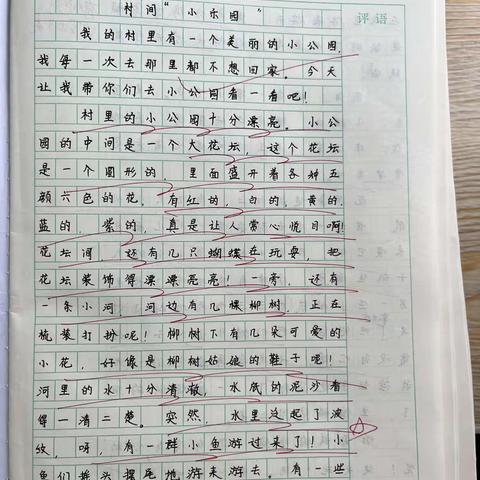 评语
村间“小乐园”
我的村里有一个美丽的小公园，
我每一次去那里都不想回家。今天
让我带你们去小公园看一看吧！
村里的小公园十分漂亮。小公
园的中间是一个大花坛，这个花坛
是一个圆形的，里面盛开着各种五
颜六色的花。有红的，白的，黄的，
蓝的，紫的，真是让人赏心悦目啊！
花坛间，还有几只蝴蝶在玩耍，把
花坛装饰得漂漂亮亮！一旁，还有
一条小河，河边有几棵柳树，正在
梳装打扮呢！柳树下有几朵可爱的
小花，好像是柳树姑娘的鞋子呢！
河里的水十分清澈，水底的泥沙看
得一清二楚。突然，水里泛起了波
纹，呀，有一群小鱼游过来了！小
鱼们摇头摆尾地游来游去。有一些